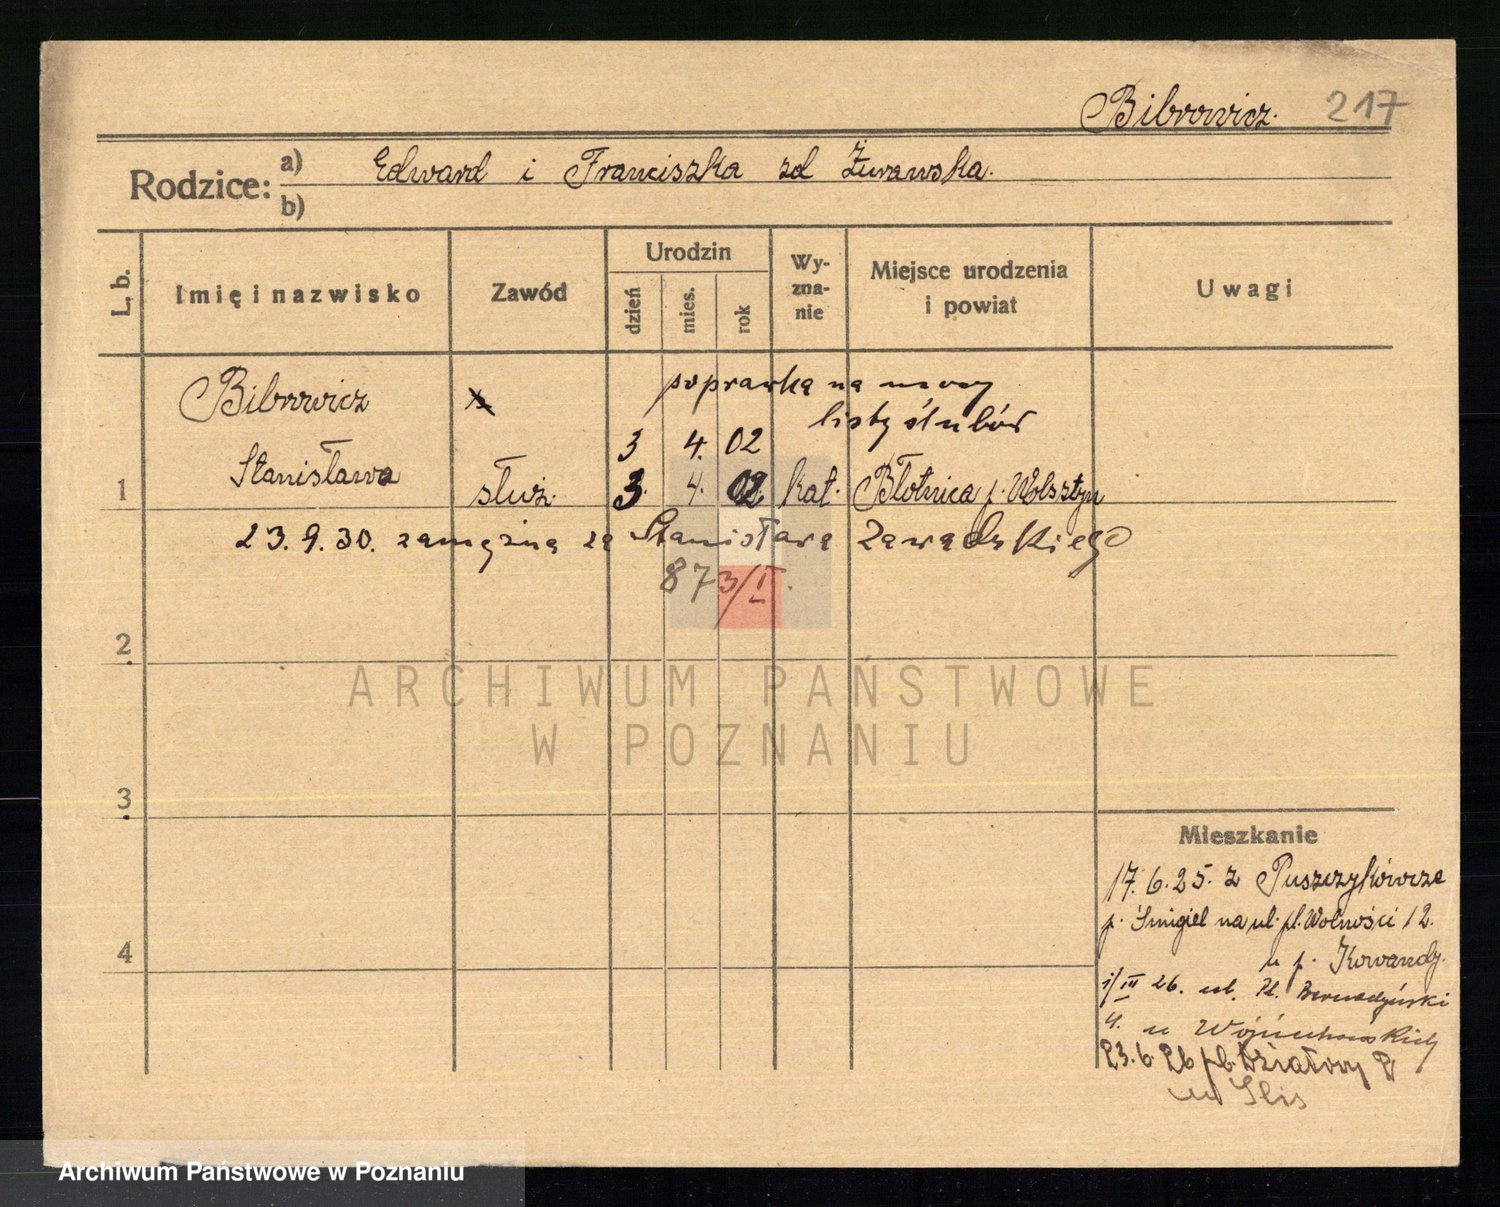 Bibrowicz. 217
Rodzice: a) Edward i Franciszka zd Żurawska.
b)
L. b. Imię i nazwisko Zawód Urodzin dzień mies. rok Wy-zna-nie Miejsce urodzenia i powiat Uwagi
Bibrowicz poprawka na mocy
listy ślubów
3 4. 02
1 Stanisława służ. 3. 4. 02 kat. Błotnica p. Wolsztyn
23.9.30. zamężna za Stanisława Zawadzkiego
873/II.
2
ARCHIWUM PAŃSTWOWE
W POZNANIU
3
Mieszkanie
17.6.25. z Puszczykówca
p. Śmigiel na ul. pl. Wolności 12.
4
u p. Kowandy.
1/III 26. ul. Pl. Bernadyński
4. u Wojciechowskich
23.6.26 pl. Działowy
u Slis
Archiwum Państwowe w Poznaniu